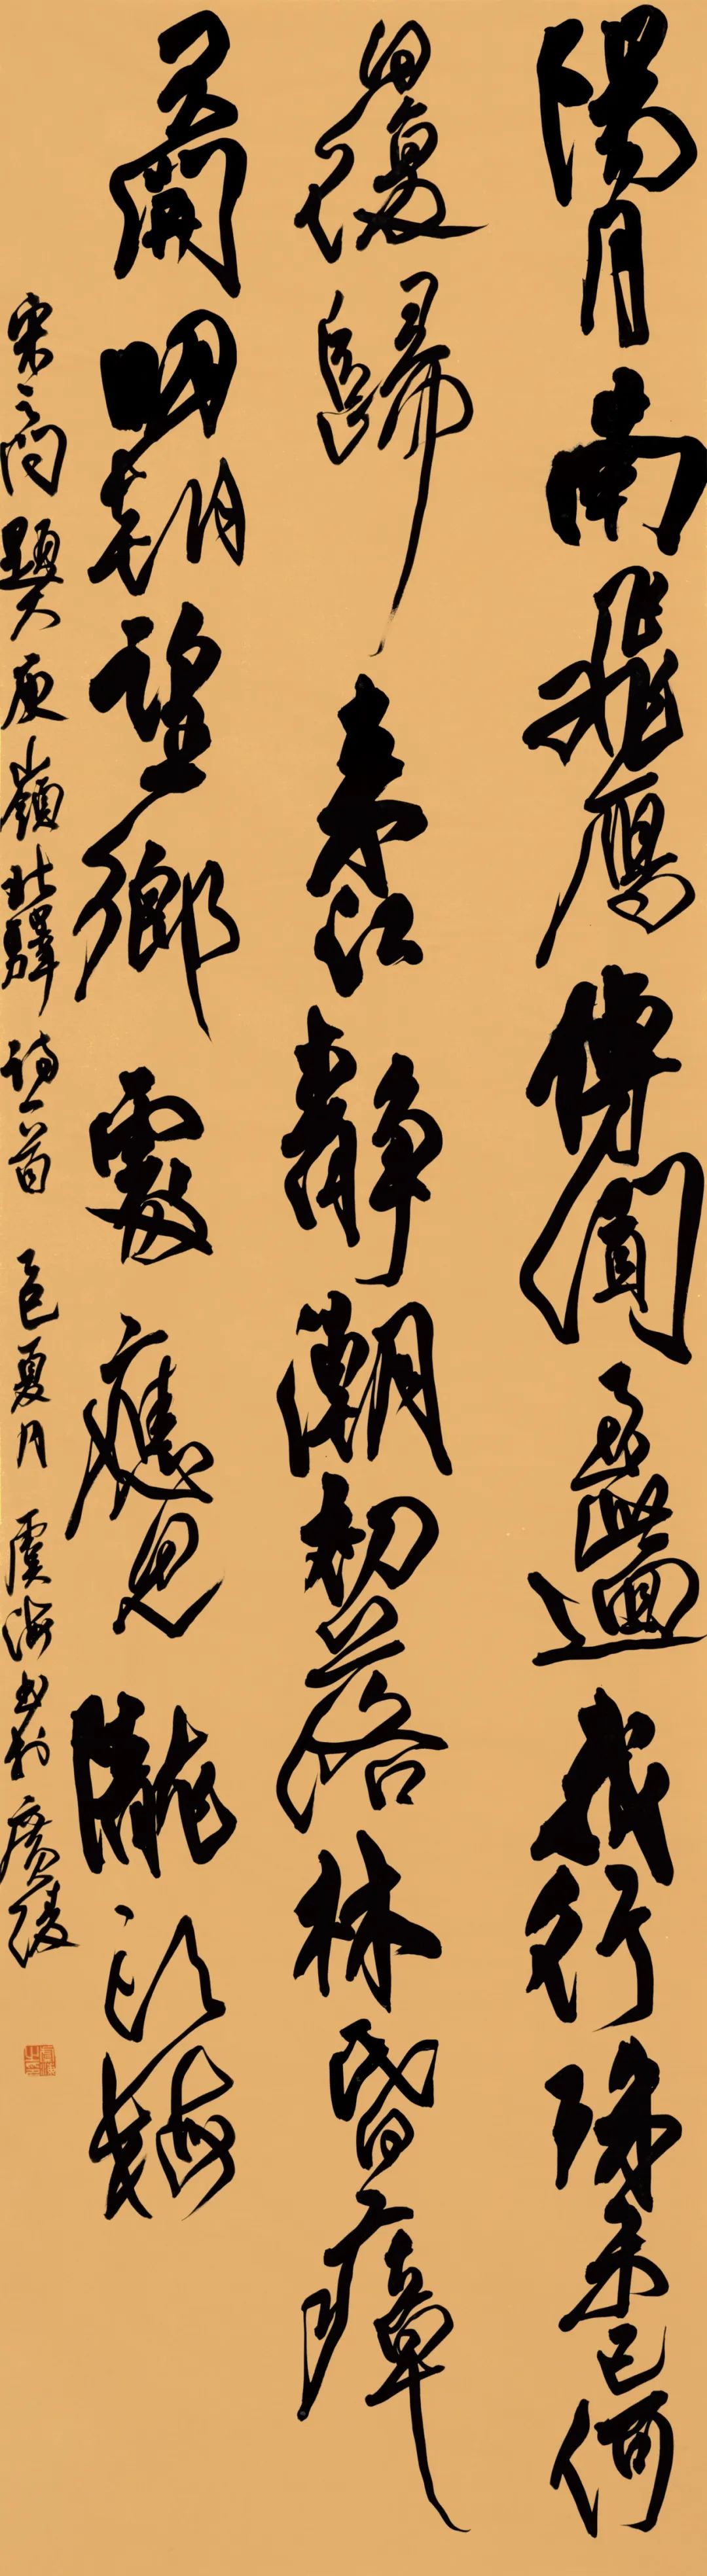 陽月南飛鴈傳聞至此迴我行殊未已何
日復歸來江靜潮初落林昏瘴
不開明朝望鄉處應見隴頭梅
宋之問題大庾嶺北驛詩一首 乙巳夏月 虞海書於廣陵